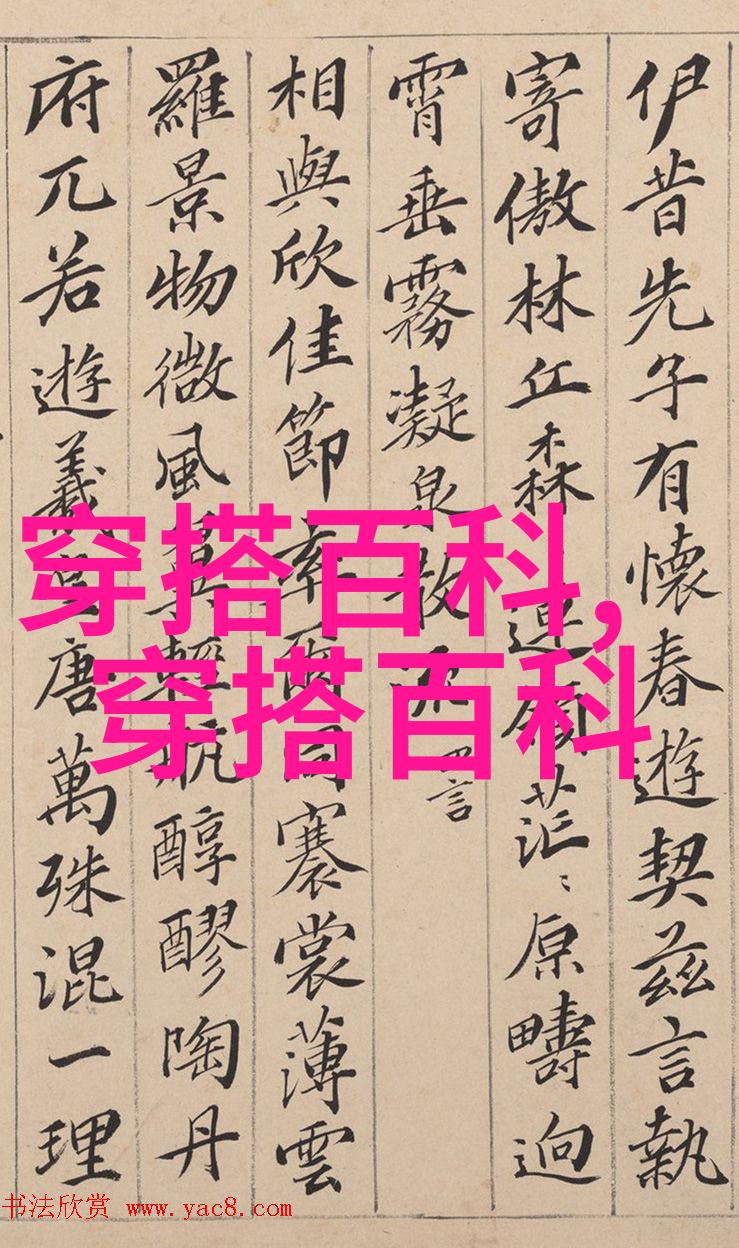 伊昔先子有懷春遊契茲言執
寄傲林丘森連嶺茫〻原疇迥
霄垂霧凝泉散流四言
相與欣佳節率爾同褰裳薄雲
羅景物微風翼輕航醇醪陶丹
府兀若遊羲唐萬殊混一理
穿搭百科,
穿搭百科
书法欣赏 www.yac8.com